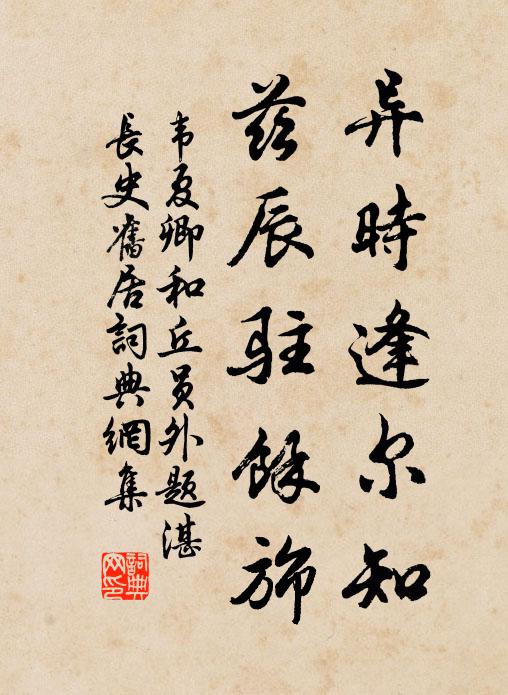 异時逢尔知
兹辰駐餘旆
韦夏卿和丘员外题湛
長史舊居詞典網集
詞典网印